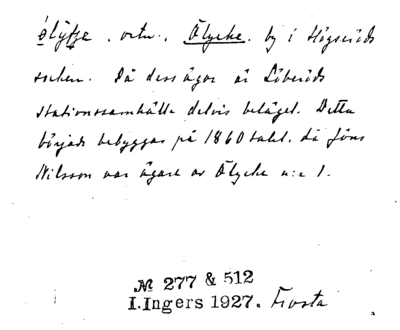 ortn. Ölycke. by i Högseröds
socken. På dess ägor är Löberöds
stationssamhälle delvis beläget. Detta
började bebyggas på 1860 talet. då Jöns
Nilsson var ägare av Ölycke n:r 1.
№ 277 & 512
I. Ingers 1927. Frosta